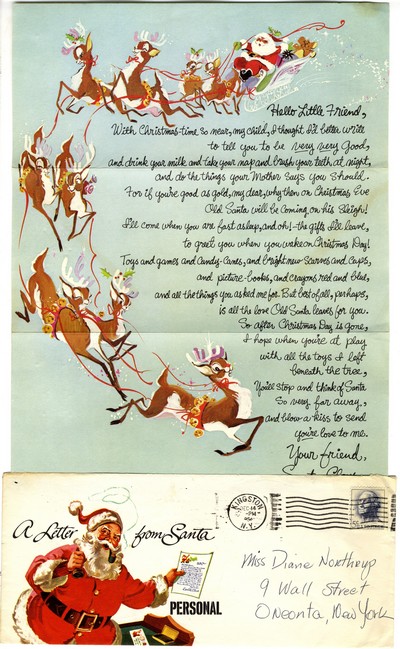 Hello Little Friend,
With Christmas-time so near, my child, I thought I'd better write
to tell you to be very very good,
and drink your milk and take your nap and brush your teeth at night,
and do the things your Mother says you should.
For if you're good as gold, my dear, why then on Christmas Eve
Old Santa will be coming on his sleigh!
I'll come when you are fast asleep, and oh!-the gifts I'll leave,
to greet you when you wake on Christmas Day!
Toys and games and candy-canes, and bright new scarves and caps,
and picture-books, and crayons red and blue,
and all the things you asked me for. But best of all, perhaps,
is all the love Old Santa leaves for you.
So after Christmas Day is gone,
I hope when you're at play
with all the toys I left
beneath the tree,
You'll stop and think of Santa
so very far away,
and blow a kiss to send
you're love to me.
Your friend,
A Letter from Santa
PERSONAL
KINGSTON
DEC 18
PM
N.Y.
Miss Diane Northrup
9 Wall Street
Oneonta, New York